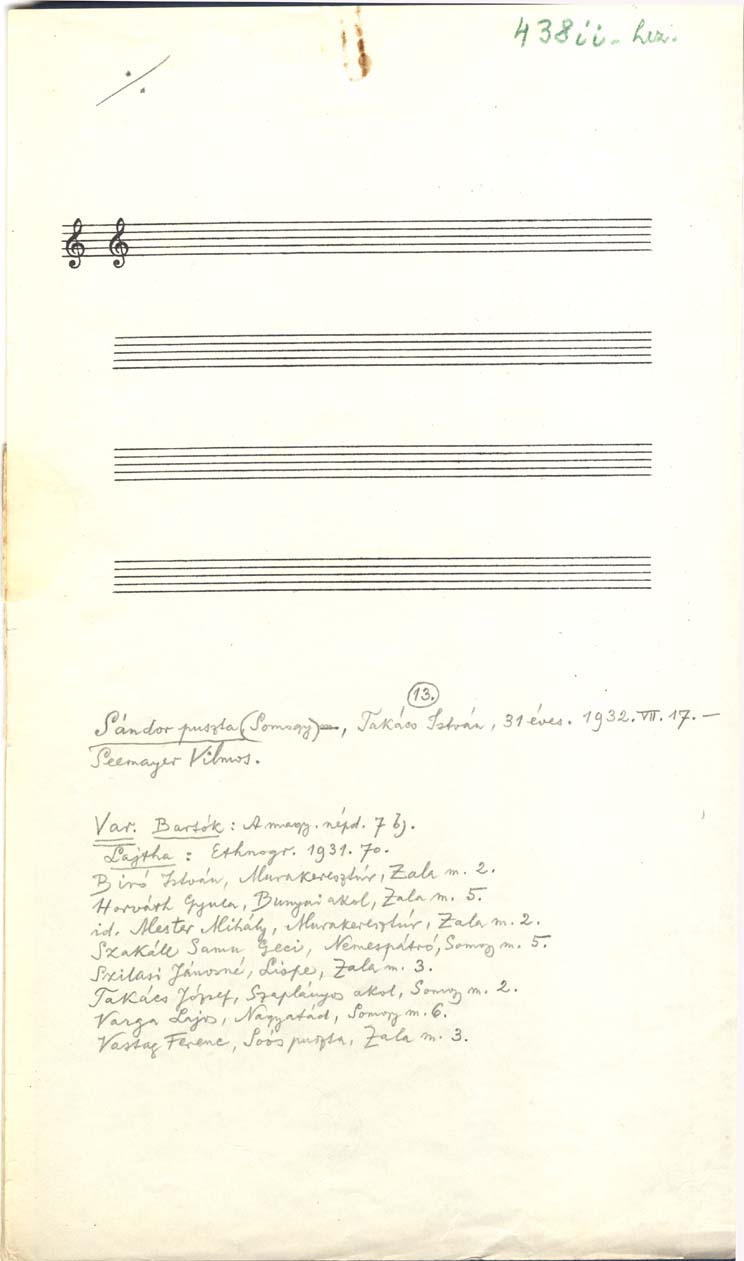 438ii-hez.
./.
13.
Sándor puszta (Somogy), Takács István, 31 éves. 1932. VII. 17. —
Seemayer Vilmos.
Var. Bartók: A magy. népd. 7 b).
Lajtha: Ethnogr. 1931. 70.
Biró István, Murakeresztúr, Zala m. 2.
Horváth Gyula, Bunyai akol, Zala m. 5.
id. Mester Mihály, Murakeresztúr, Zala m. 2.
Szakáll Samu Geci, Nemespátró, Somogy m. 5.
Szilasi Jánosné, Lispe, Zala m. 3.
Takács József, Szaplányos akol, Somogy m. 2.
Varga Lajos, Nagyatád, Somogy m. 6.
Vastag Ferenc, Soós puszta, Zala m. 3.